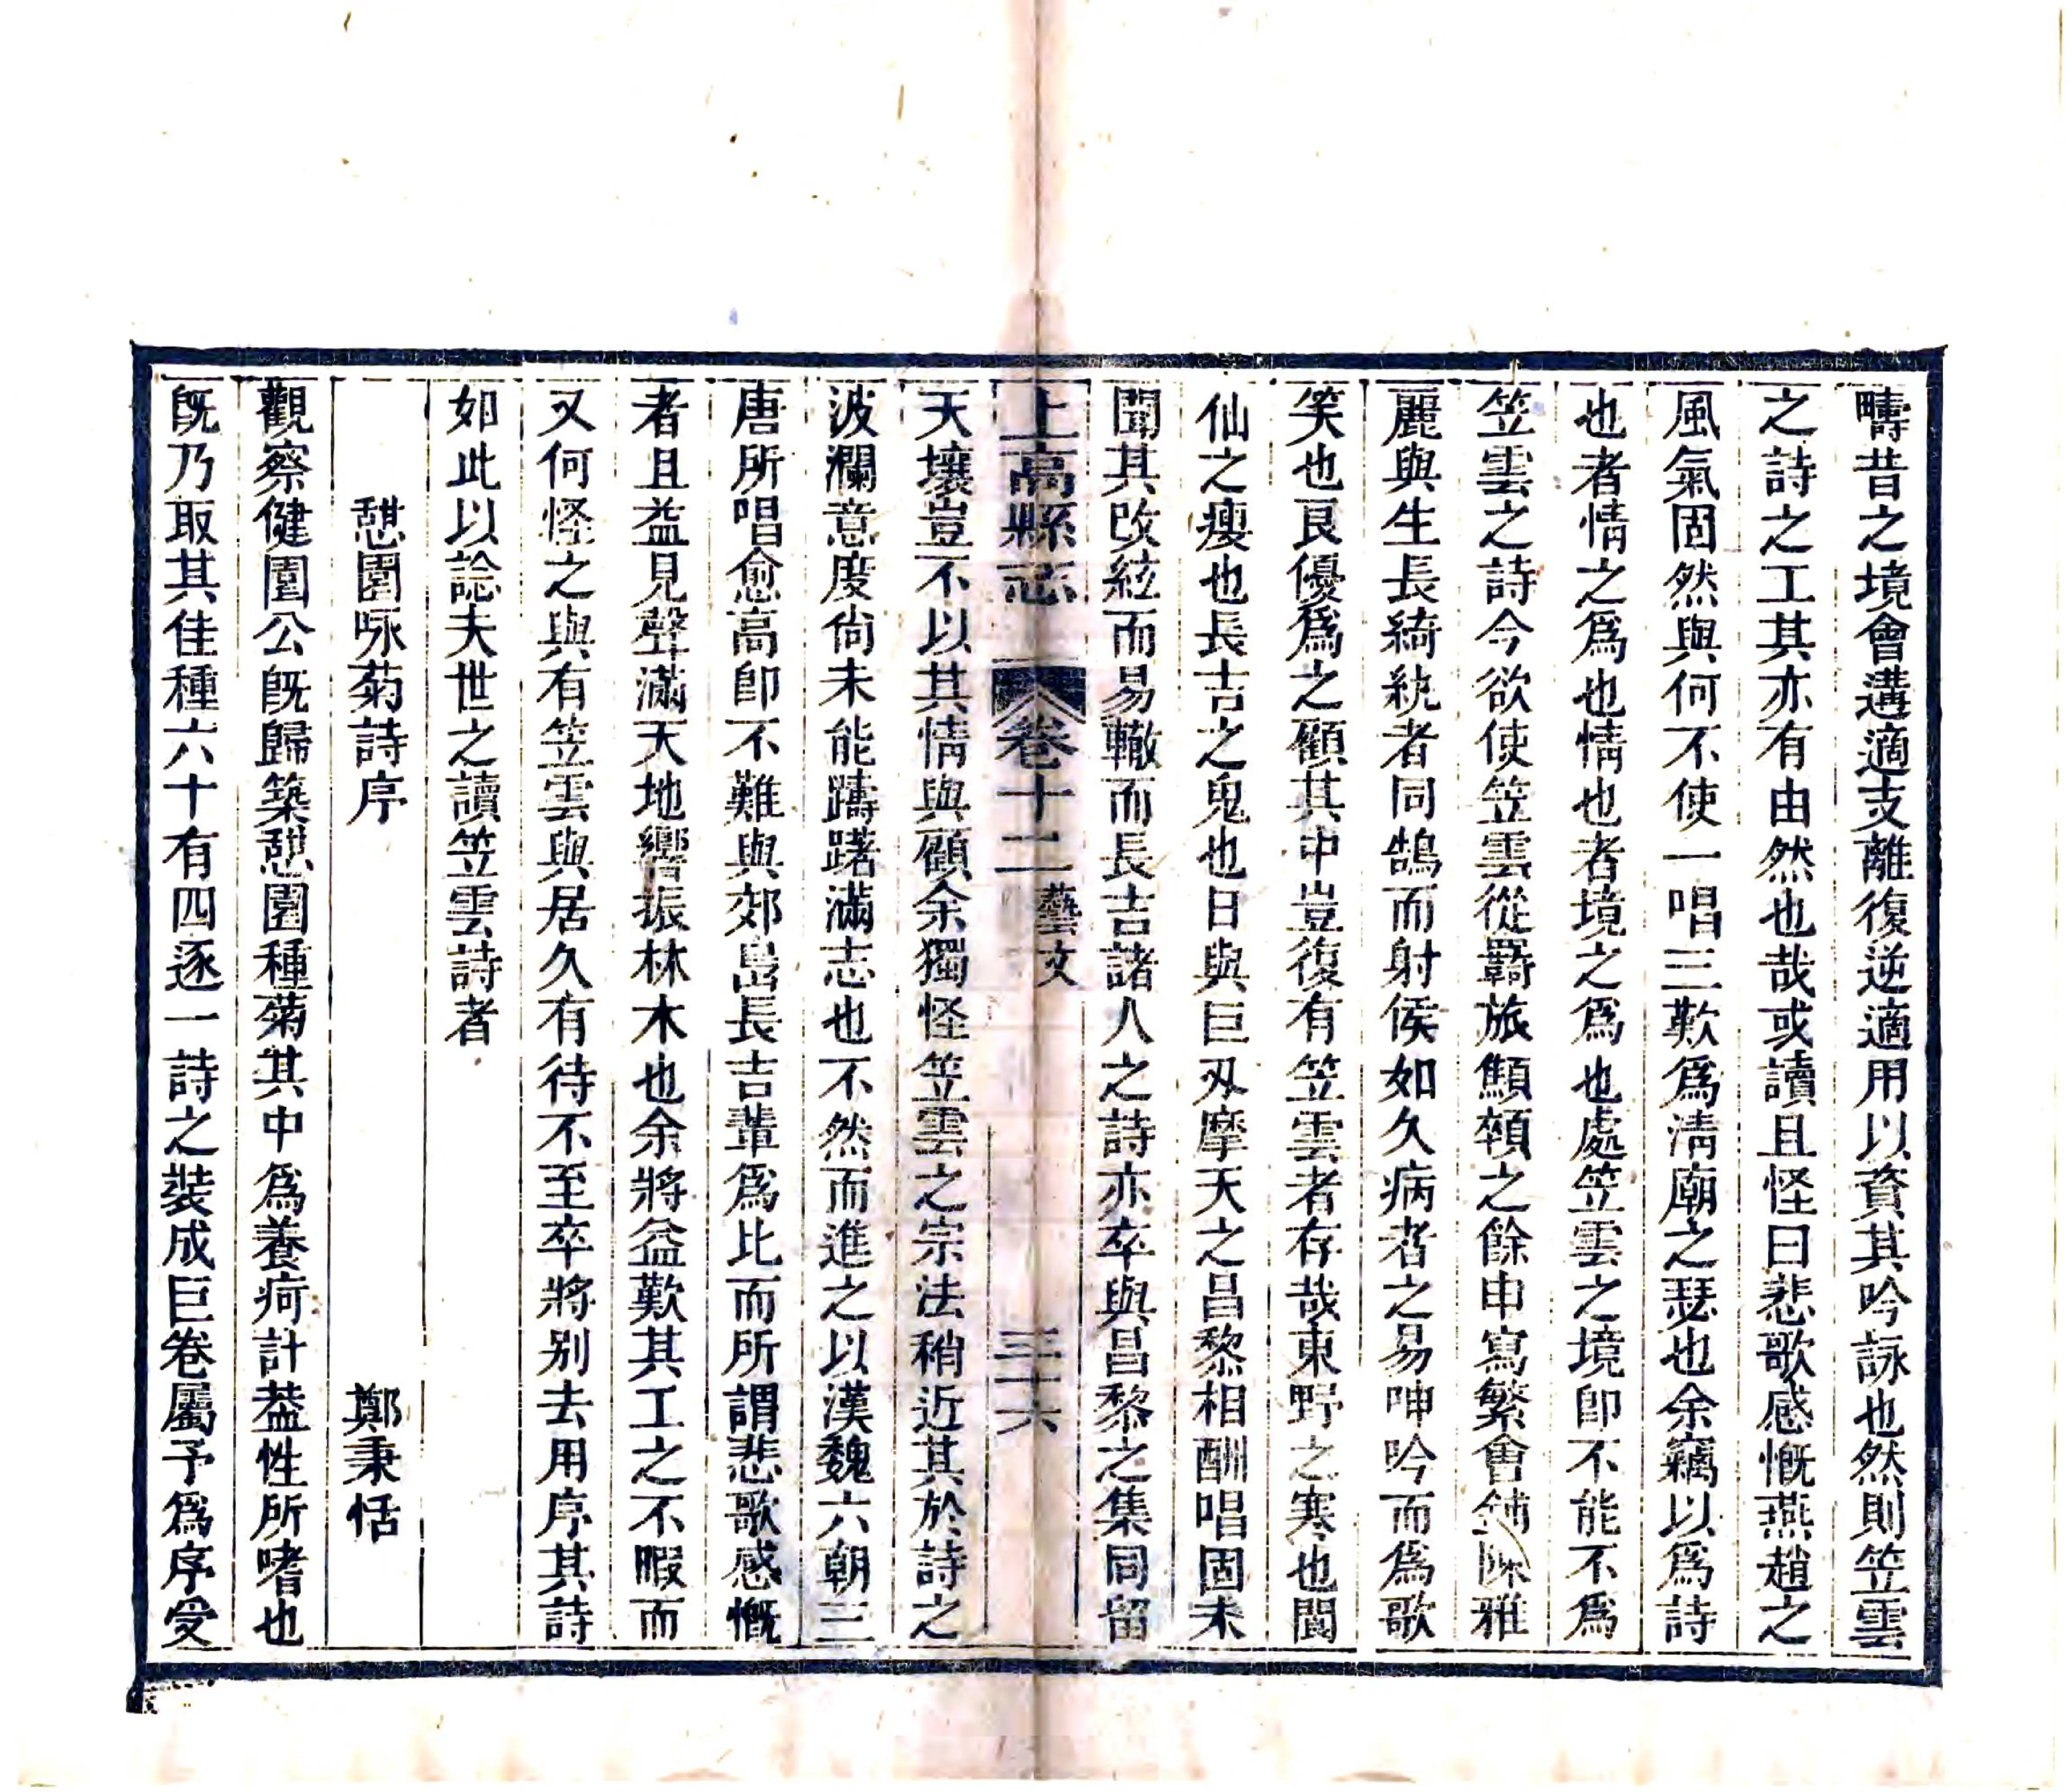 疇昔之境會遘適支離復逆適用以資其吟詠也然則笠雲
之詩之工其亦有由然也哉或讀且怪曰悲歌感慨燕趙之
風氣固然與何不使一唱三歎爲清廟之瑟也余竊以爲詩
也者情之爲也情也者境之爲也處笠雲之境卽不能不爲
笠雲之詩今欲使笠雲從羇旅顦顇之餘申寫繁會鋪陳雅
麗與生長綺紈者同鵠而射侯如久病者之易呻吟而爲歌
笑也良優爲之顧其中豈復有笠雲者存哉東野之寒也閬
仙之瘦也長吉之鬼也日與巨刄摩天之昌黎相酬唱固未
聞其改絃而易轍而長吉諸人之詩亦卒與昌黎之集同留
上高縣志 卷十二 藝文 三十六
天壤豈不以其情與顧余獨怪笠雲之宗法稍近其於詩之
波瀾意度尙未能躊躇滿志也不然而進之以漢魏六朝三
唐所唱愈高卽不難與郊島長吉輩爲比而所謂悲歌感慨
者且益見聲滿天地響振林木也余將益歎其工之不暇而
又何怪之與有笠雲與居久有待不至卒將别去用序其詩
如此以諗夫世之讀笠雲詩者
憇園咏菊詩序 鄭秉恬
觀察健園公旣歸築憇園種菊其中爲養疴計葢性所嗜也
旣乃取其佳種六十有四逐一詩之裝成巨卷屬予爲序受